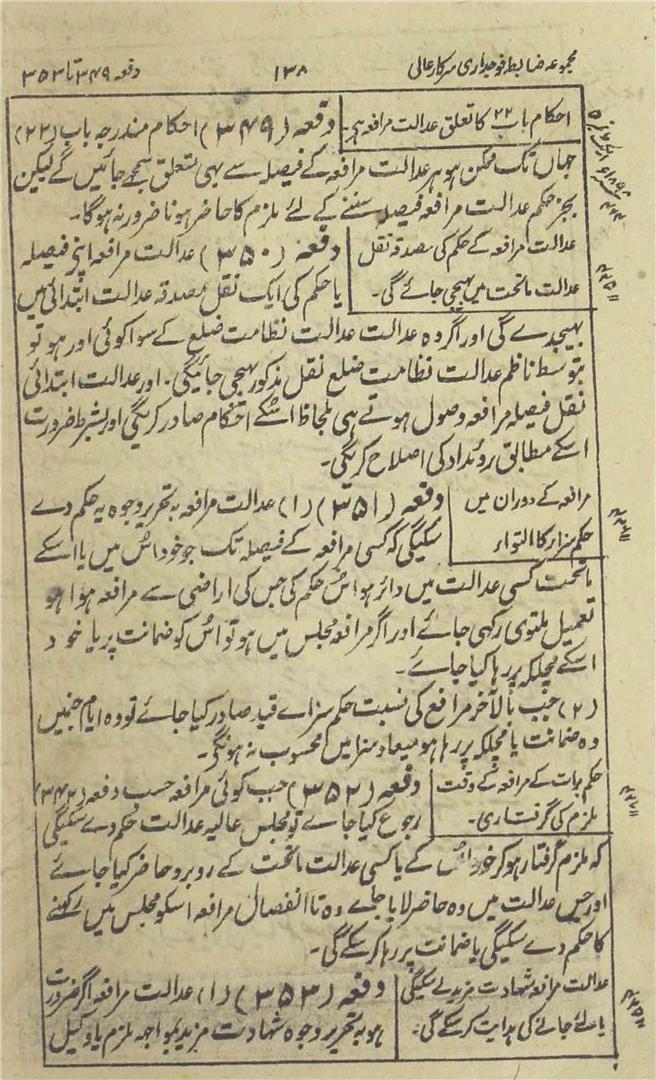 مجموعہ ضابطہ فوجداری سرکار عالی
۱۳۸
دفعہ ۳۴۹ تا ۳۵۳
احکام باب ۲۲ کا تعلق عدالت مرافعہ ہے۔
دفعہ (۳۴۹) احکام مندرجہ باب (۲۲)
جہاں تک ممکن ہو ہر عدالت مرافعہ کے فیصلہ سے بہی متعلق سمجھے جائیں گے لیکن
بجز حکم عدالت مرافعہ فیصلہ سننے کے لئے ملزم کا حاضر ہونا ضرور نہ ہوگا۔
عدالت مرافعہ کے حکم کی مصدقہ نقل
عدالت ماتحت میں بہیجی جائے گی۔
دفعہ (۳۵۰) عدالت مرافعہ اپنے فیصلہ
یا حکم کی ایک نقل مصدقہ عدالت ابتدائی میں
بہیجدے گی اور اگر وہ عدالت عدالت نظامت ضلع کے سوا کوئی اور ہو تو
بتوسط ناظم عدالت نظامت ضلع نقل مذکور بہیجی جائیگی۔ اور عدالت ابتدائی
نقل فیصلہ مرافعہ وصول ہوتے ہی بلحاظ اسکے احکام صادر کریگی اور بشرط ضرورت
اسکے مطابق روئداد کی اصلاح کریگی۔
مرافعہ کے دوران میں
حکم سزا کا التواء
دفعہ (۳۵۱) (۱) عدالت مرافعہ بہ تحریر وجوہ یہ حکم دے
سکیگی کہ کسی مرافعہ کے فیصلہ تک جو خود اُس میں یا اسکے
ماتحت کسی عدالت میں دائر ہو اُس حکم کی جس کی اراضی سے مرافعہ ہوا ہو
تعمیل ملتوی رکہی جائے اور اگر مرافع مجلس میں ہو تو اُس کو ضمانت پر یا خود
اسکے مچلکہ پر رہا کیا جائے۔
(۲) جب بالآخر مرافع کی نسبت حکم سزاے قید صادر کیا جائے تو وہ ایام جنمیں
وہ ضمانت یا مچلکہ پر رہا ہو میعاد سزا میں محسوب نہ ہونگی۔
حکم برات کے مرافعہ کے وقت
ملزم کی گرفتاری۔
دفعہ (۳۵۲) جب کوئی مرافعہ حسب دفعہ (۳۴۲)
رجوع کیا جاے تو مجلس عالیہ عدالت حکم دے سکیگی
کہ ملزم گرفتار ہو کر خود اُس کے یا کسی عدالت ماتحت کے روبرو حاضر کیا جائے
اور جس عدالت میں وہ حاضر لایا جاے وہ تا انفصال مرافعہ اسکو مجلس میں رکہنے
کا حکم دے سکیگی یا ضمانت پر رہا کر سکے گی۔
عدالت مرافعہ شہادت مزید لے سکیگی
یا لئے جانے کی ہدایت کر سکے گی۔
دفعہ (۳۵۳) (۱) عدالت مرافعہ اگر ضرورت
ہو بہ تحریر وجوہ شہادت مزید بمواجہ ملزم یا وکیل